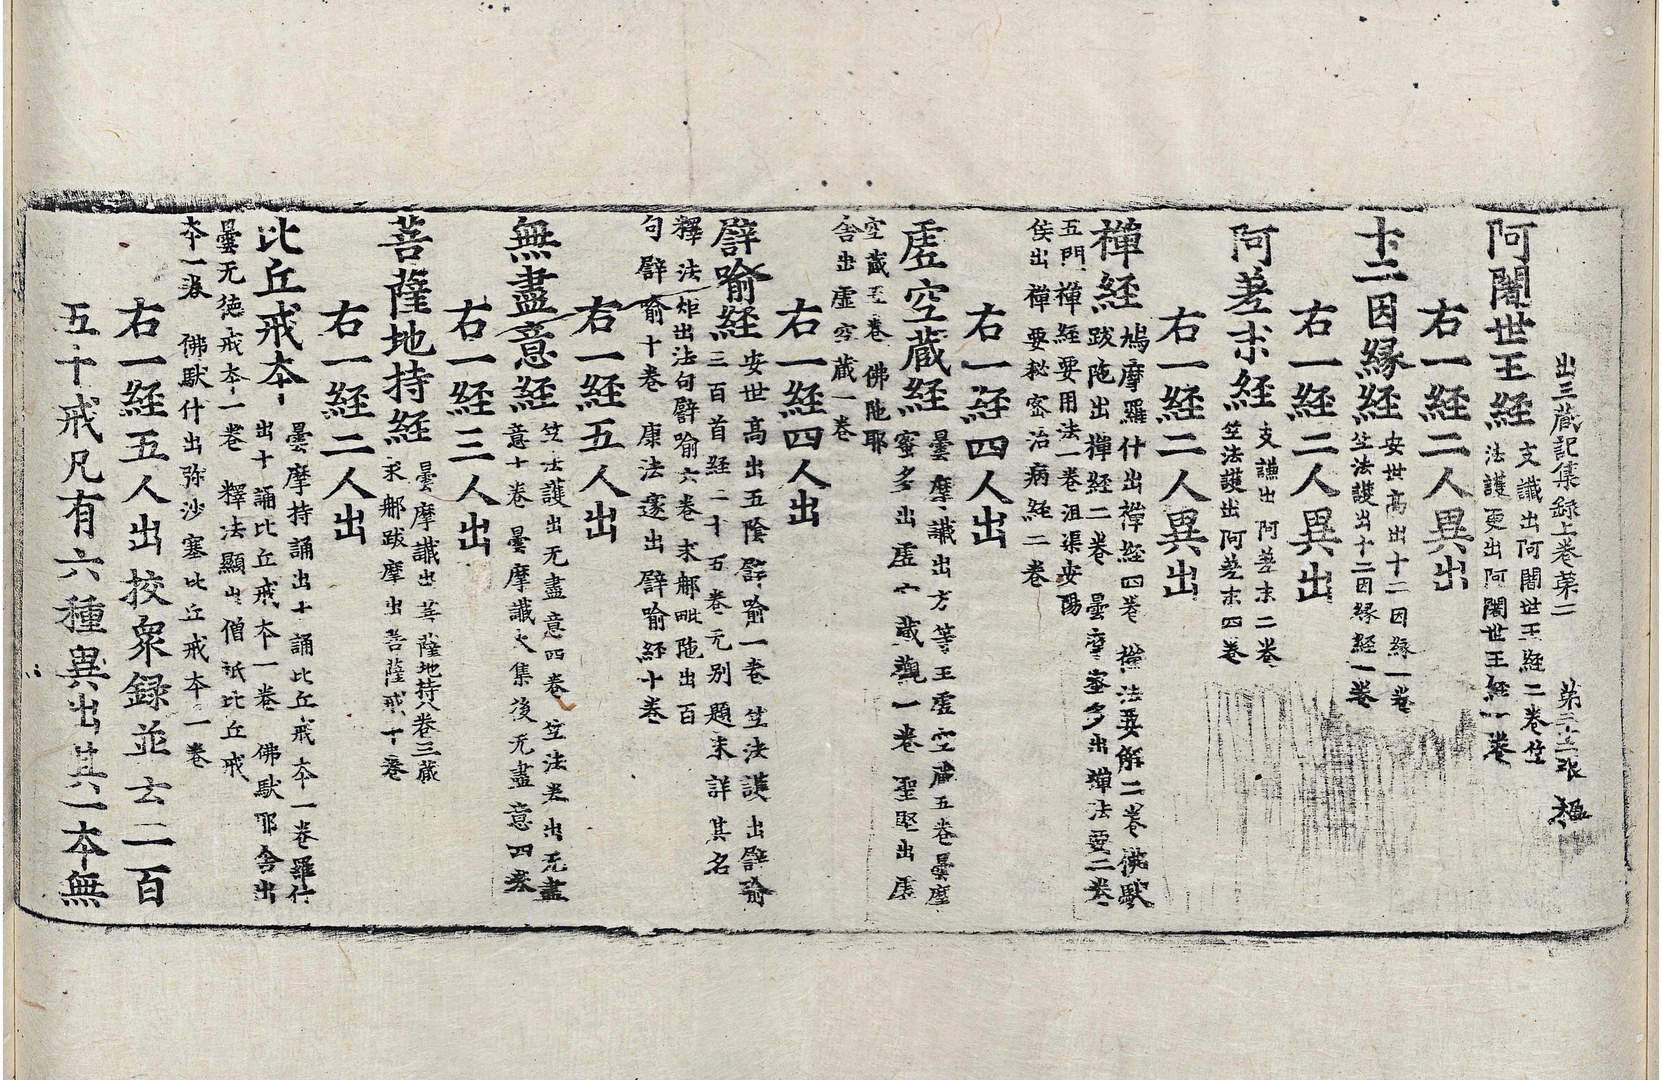 出三蔵記集録上卷苐二 苐三十五張 楹
阿闍世王経 支讖出阿闍世王経二卷竺
法護更出阿闍世王経一卷
右一経二人異出
十二因縁経 安世高出十二因縁一卷
竺法護出十二因縁経一卷
右一経二人異出
阿差末経 支謙出阿差末二卷
竺法護出阿差末四卷
右一経二人異出
禪経 鳩摩羅什出禪経四卷 禪法要解二卷 佛馱
跋陁出禪経二卷 曇摩蜜多出禪法要二卷
五門禪経要用法一卷沮渠安陽
侯出禪要秘宻治病経二卷
右一経四人出
虚空蔵経 曇摩讖出方等王虚空蔵五卷曇摩
蜜多出虚空蔵觀一卷 聖堅出虚
空蔵五卷 佛陁耶
舎出虚空蔵一卷
右一経四人出
譬喻経 安世高出五陰譬喻一卷 竺法護出譬喻
三百首経二十五卷元别題未詳其名
釋法炬出法句譬喻六卷 求郍毗陁出百
句譬喻十卷 康法邃出譬喻経十卷
右一経五人出
無盡意経 竺法護出无盡意四卷 竺法眷出无盡
意十卷 曇摩讖大集後无盡意四卷
右一経三人出
菩薩地持経 曇摩讖出菩薩地持八卷三蔵
求郍跋摩出菩薩戒十卷
右一経二人出
比丘戒夲 曇摩持誦出十誦比丘戒夲一卷 羅什
出十誦比丘戒夲一卷 佛馱耶舎出
曇无徳戒夲一卷 釋法顯出僧祇比丘戒
夲一卷 佛馱什出弥沙塞比丘戒夲一卷
右一経五人出挍衆録並云二百
五十戒凡有六種異出其一夲無